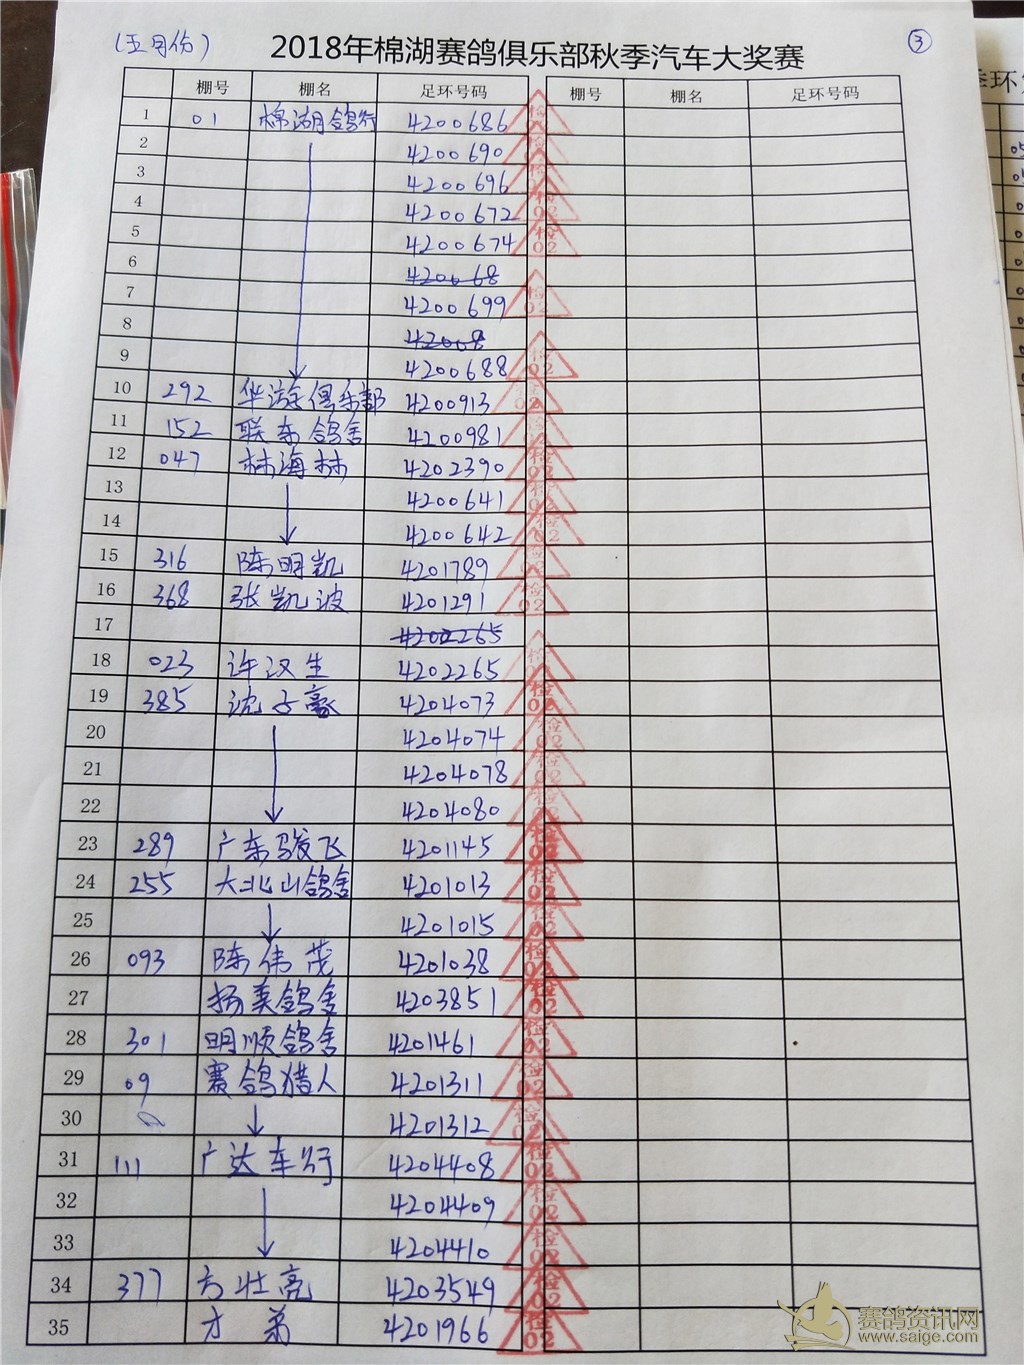 (五月份)
2018年棉湖赛鸽俱乐部秋季汽车大奖赛
③
棚号 棚名 足环号码 棚号 棚名 足环号码
1 01 棉湖鸽行 4200686
2 4200690
3 4200696
4 4200672
5 4200674
6 420068
7 4200699
8 42008
9 4200688
10 292 华游俱乐部 4200913
11 152 联东鸽舍 4200981
12 047 林海林 4202390
13 4200641
14 4200642
15 316 陈明凯 4201789
16 368 张凯波 4201291
17 4202265
18 023 许汉生 4202265
19 385 沈子豪 4204073
20 4204074
21 4204078
22 4204080
23 289 广东骏飞 4201145
24 255 大北山鸽舍 4201013
25 4201015
26 093 陈伟茂 4201038
27 扬美鸽舍 4203851
28 301 明顺鸽舍 4201461
29 09 赛鸽猎人 4201311
30 4201312
31 111 广达车行 4204408
32 4204409
33 4204410
34 377 方壮亮 4203549
35 才弟 4201966
检 02
赛鸽资讯网
www.saige.com